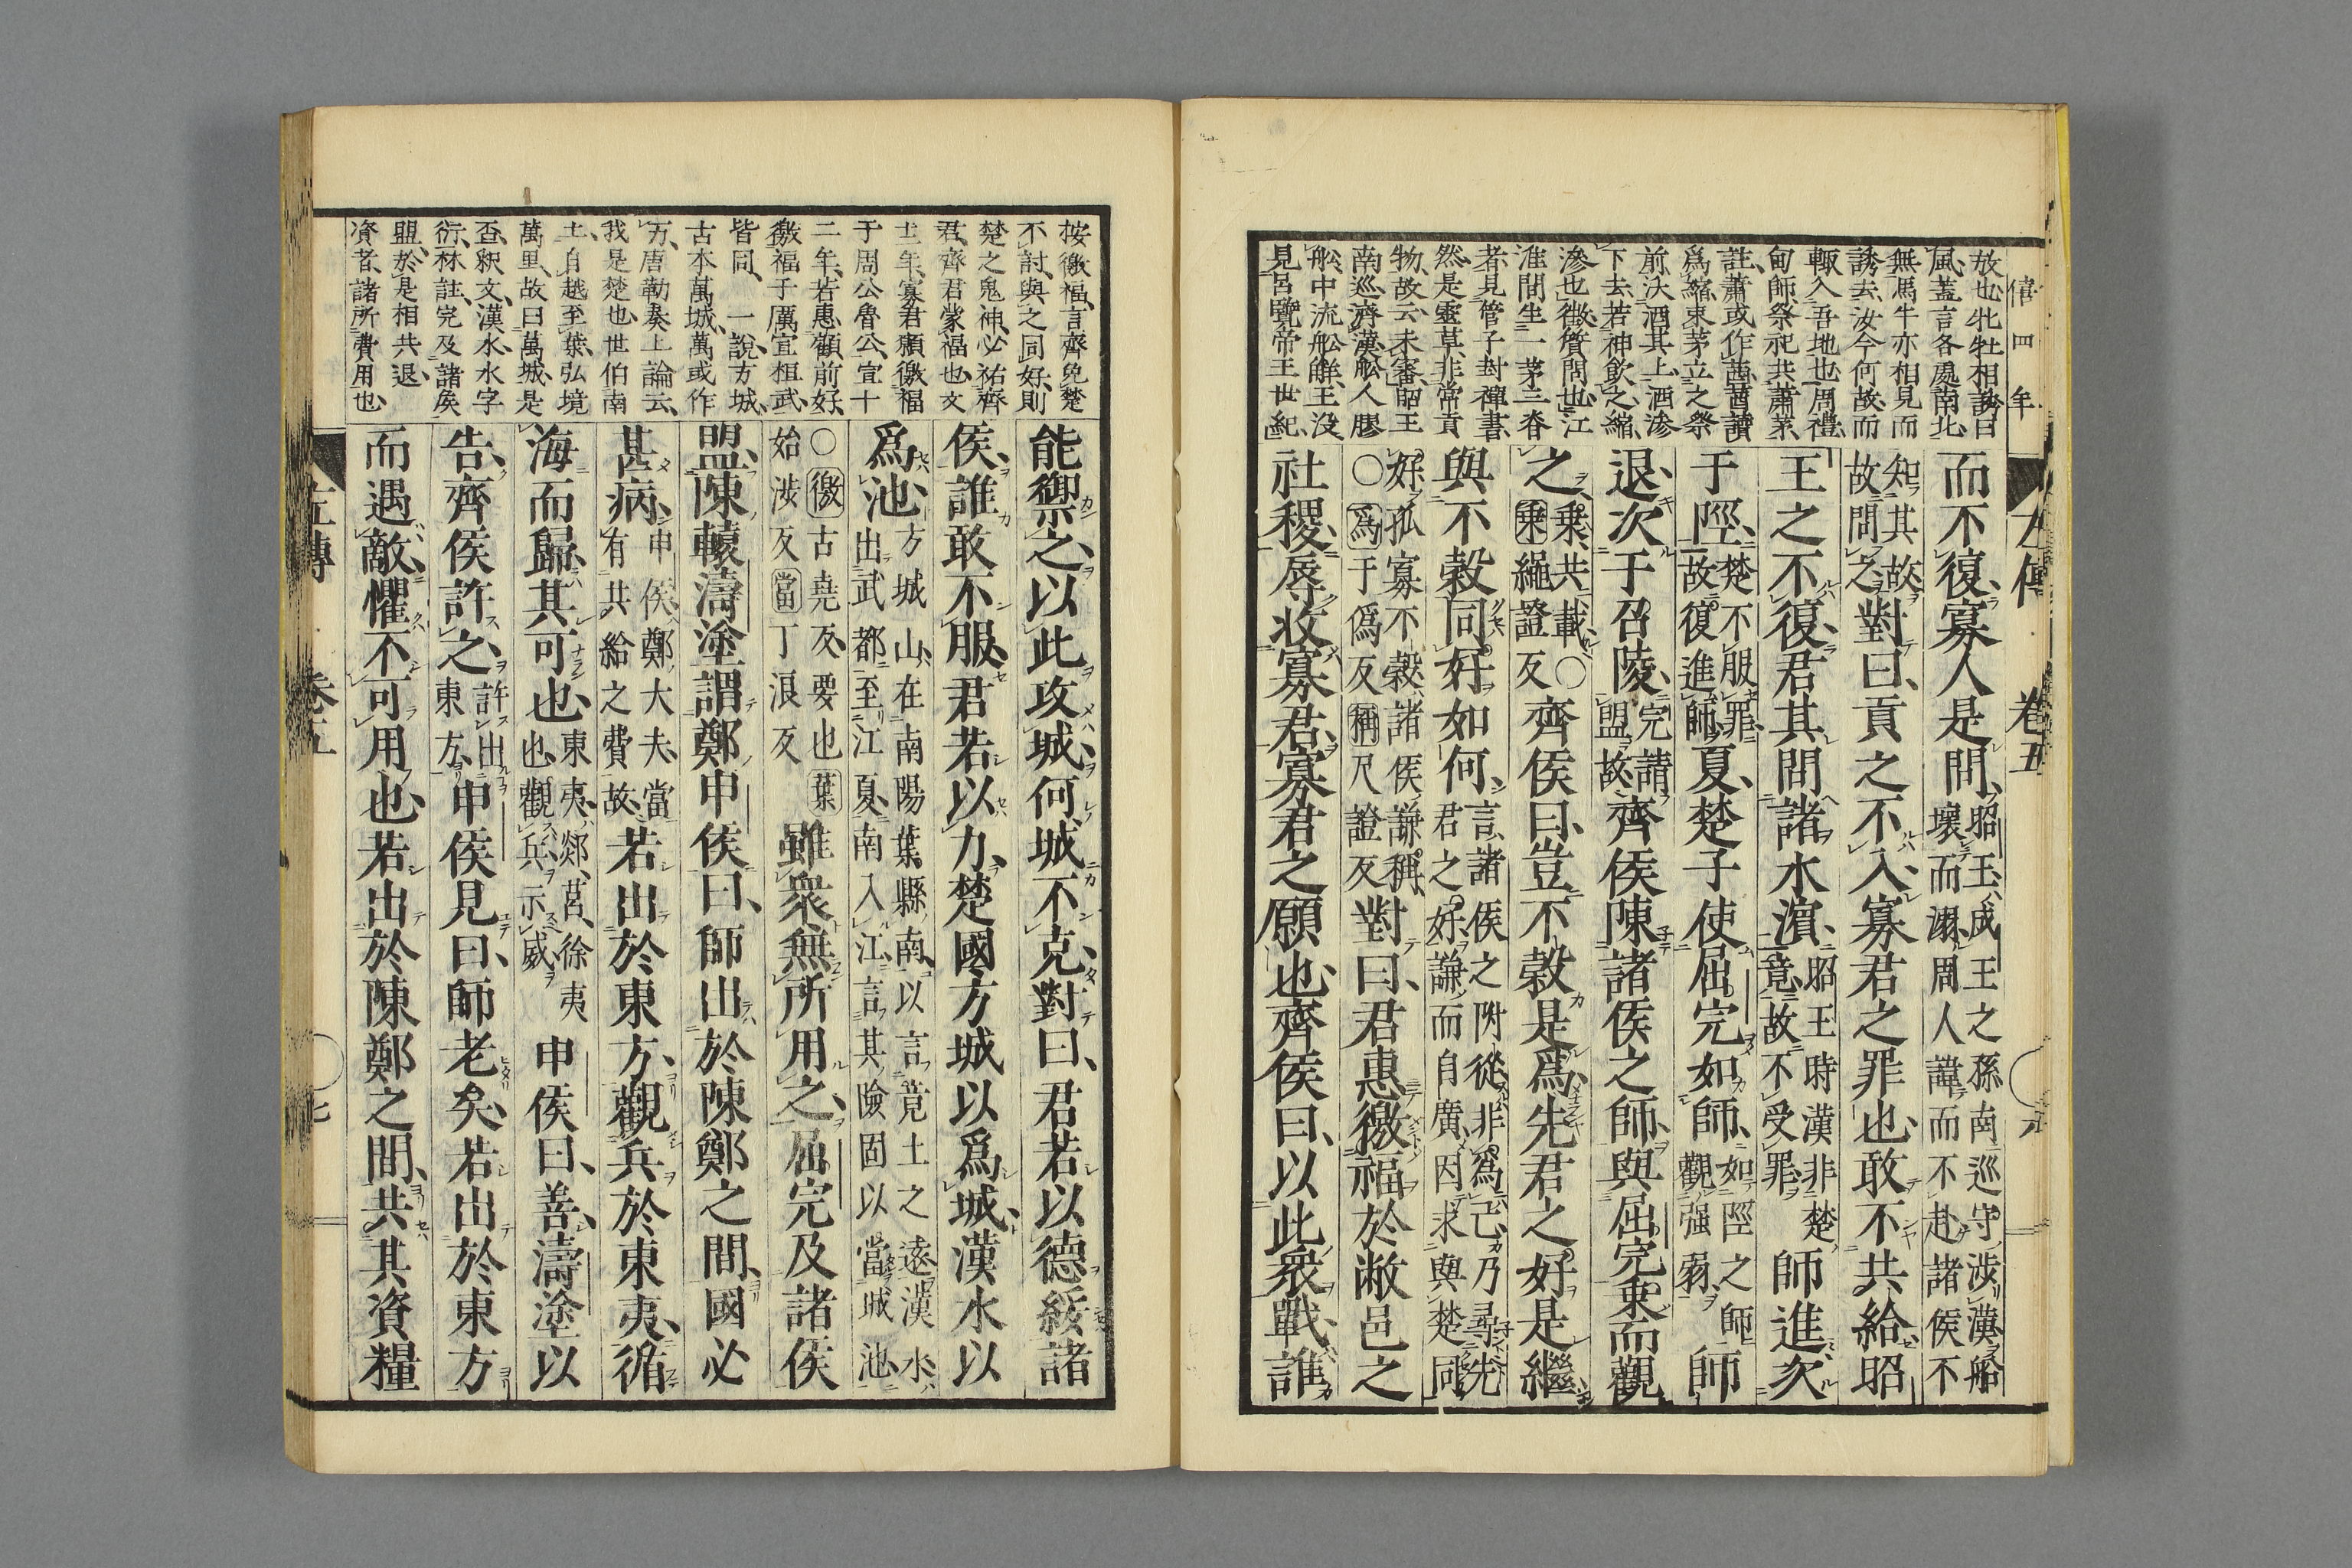 僖四年
左傳 卷五 六
放也牝牡相誘曰
風蓋言各處南北
無馬牛亦相見而
誘去汝今何故而
輙入吾地也周禮
甸師祭祀共蕭茅
註蕭或作莤莤讀
爲縮束茅立之祭
前沃酒其上酒滲
下去若神飲之縮
滲也徵質問也江
淮間生一茅三脊
者見管子封禪書
然是靈草非常貢
物故云未審昭王
南巡濟漢船人膠
船中流船觧王没
見呂覽帝王世紀
而不復寡人是問昭王成王之孫南巡守渉漢船壞而溺周人諱而不赴諸侯不
知其故故問之對曰貢之不入寡君之罪也敢不共給昭
王之不復君其問諸水濱昭王時漢非楚竟故不受罪師進次
于陘楚不服罪故復進師夏楚子使屈完如師如陘之師觀强弱師
退次于召陵完請盟故齊侯陳諸侯之師與屈完乗而觀
之乗共載○乗繩證反齊侯曰豈不穀是爲先君之好是繼
與不穀同好如何言諸侯之附從非爲己乃尋先君之好謙而自廣因求與楚同
好孤寡不穀諸侯謙稱○爲于僞反稱尺證反對曰君惠徼福於敝邑之
社稷辱收寡君寡君之願也齊侯曰以此衆戰誰
按徼福言齊免楚
不討與之同好則
楚之鬼神必祐齊
君齊君蒙福也文
十二年寡君願徼福
于周公魯公宣十
二年若惠顧前好
徼福于厲宣桓武
皆同一說方城
古本萬城萬或作
万唐勒奏上論云
我是楚也世伯南
土自越至葉弘境
萬里故曰萬城是
否釈文漢水水字
衍林註完及諸侯
盟於是相共退
資者諸所費用也
能禦之以此攻城何城不克對曰君若以德綏諸
侯誰敢不服君若以力楚國方城以爲城漢水以
爲池方城山在南陽葉縣南以言竟土之遠漢水出武都至江夏南入江言其險固以當城池
○徼古堯反要也葉始渉反當丁浪反雖衆無所用之屈完及諸侯
盟陳轅濤塗謂鄭申侯曰師出於陳鄭之間國必
甚病申侯鄭大夫當有共給之費故若出於東方觀兵於東夷循
海而歸其可也東夷郯莒徐夷也觀兵示威申侯曰善濤塗以
告齊侯許之許出東方申侯見曰師老矣若出於東方
而遇敵懼不可用也若出於陳鄭之間共其資糧
左傳 卷五 七